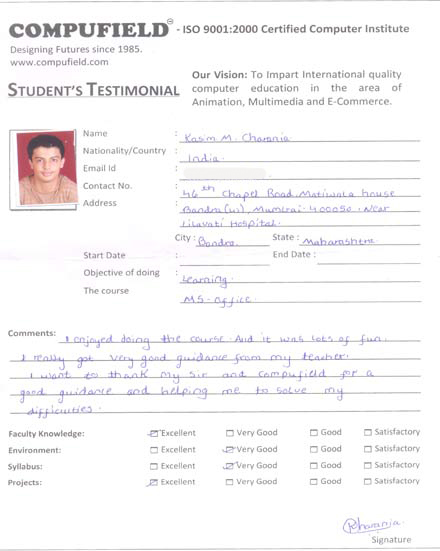 COMPUFIELD® - ISO 9001:2000 Certified Computer Institute
Designing Futures since 1985.
www.compufield.com
Our Vision: To Impart International quality
computer education in the area of
Animation, Multimedia and E-Commerce.
STUDENT'S TESTIMONIAL
Name : Kasim M. Charania
Nationality/Country : India.
Email Id :
Contact No. :
Address : 46th Chapel Road. Matiwala house
Bandra (w), Mumbai- 400050. Near
Lilavati Hospital.
City : Bandra. State : Maharashtra
Start Date : End Date :
Objective of doing : Learning.
The course MS-office.
Comments: I enjoyed doing the course. And it was lots of fun.
I really got very good guidance from my teacher.
I want to thank my sir and compufield for a
good guidance and helping me to solve my
difficulties.
Faculty Knowledge: Excellent Very Good Good Satisfactory
Environment: Excellent Very Good Good Satisfactory
Syllabus: Excellent Very Good Good Satisfactory
Projects: Excellent Very Good Good Satisfactory
Signature